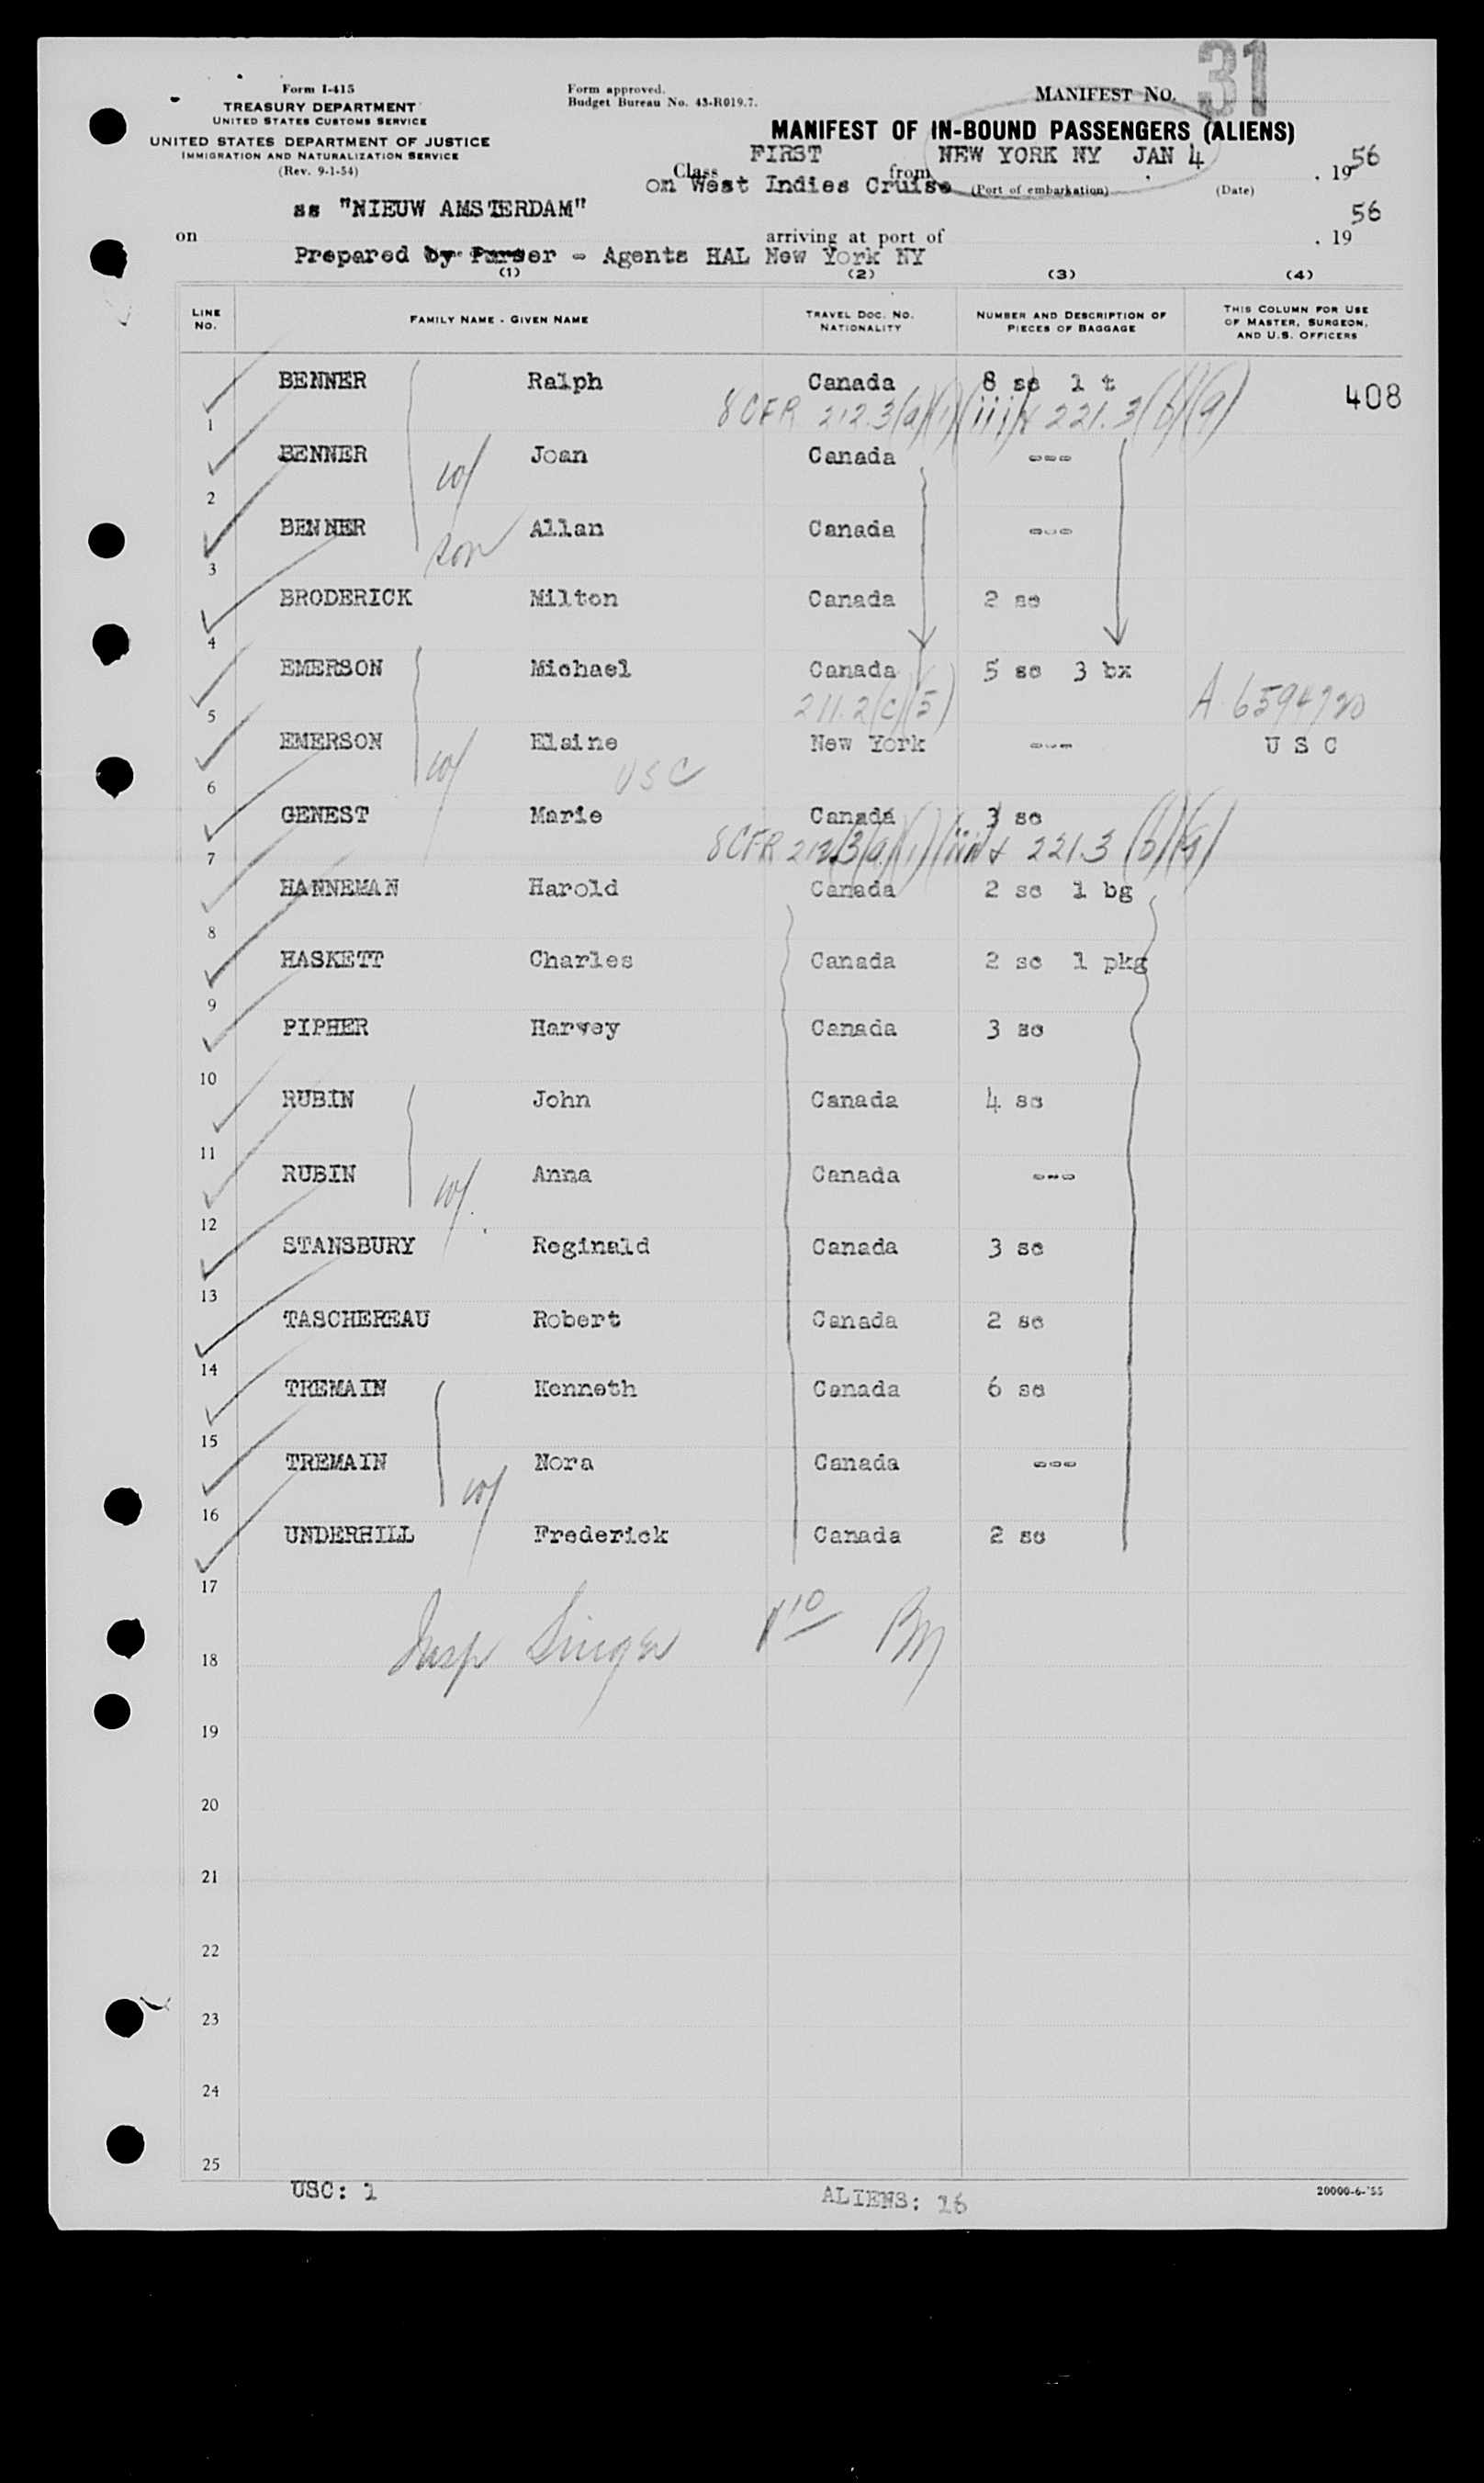 Form I-415
TREASURY DEPARTMENT
UNITED STATES CUSTOMS SERVICE
UNITED STATES DEPARTMENT OF JUSTICE
IMMIGRATION AND NATURALIZATION SERVICE
(Rev. 9-1-54)
Form approved.
Budget Bureau No. 43-R019.7.
MANIFEST NO. 31
MANIFEST OF IN-BOUND PASSENGERS (ALIENS)
Class FIRST from NEW YORK NY JAN 4, 1956
on West Indies Cruise (Port of embarkation) (Date)
on ss "NIEUW AMSTERDAM" arriving at port of , 19 56
Prepared by Purser - Agents HAL New York NY
(1) (2) (3) (4)
LINE NO. FAMILY NAME - GIVEN NAME TRAVEL DOC. NO. NATIONALITY NUMBER AND DESCRIPTION OF PIECES OF BAGGAGE THIS COLUMN FOR USE OF MASTER, SURGEON, AND U.S. OFFICERS
BENNER Ralph Canada 8 sc 1 t 408
1 8 CFR 212.3(a)(1)(iii) & 221.3(b)(9)
BENNER w/ Joan Canada ---
2
BENNER son Allan Canada ---
3
BRODERICK Milton Canada 2 sc
4
EMERSON Michael Canada 5 sc 3 bx
5 211.2(c)(5) A 6594720
EMERSON w/ Elaine New York --- U S C
6 USC
GENEST Marie Canada 3 sc
7 8 CFR 212.3(a)(1)(iii) & 221.3(b)(9)
HANNEMAN Harold Canada 2 sc 1 bg
8
HASKETT Charles Canada 2 sc 1 pkg
9
PIPHER Harvey Canada 3 sc
10
RUBIN John Canada 4 sc
11
RUBIN w/ Anna Canada ---
12
STANSBURY Reginald Canada 3 sc
13
TASCHEREAU Robert Canada 2 sc
14
TREMAIN Kenneth Canada 6 sc
15
TREMAIN w/ Nora Canada ---
16
UNDERHILL Frederick Canada 2 sc
17
18 Insp Singer
19
20
21
22
23
24
25
USC: 1 ALIENS: 16 20000-6-'55